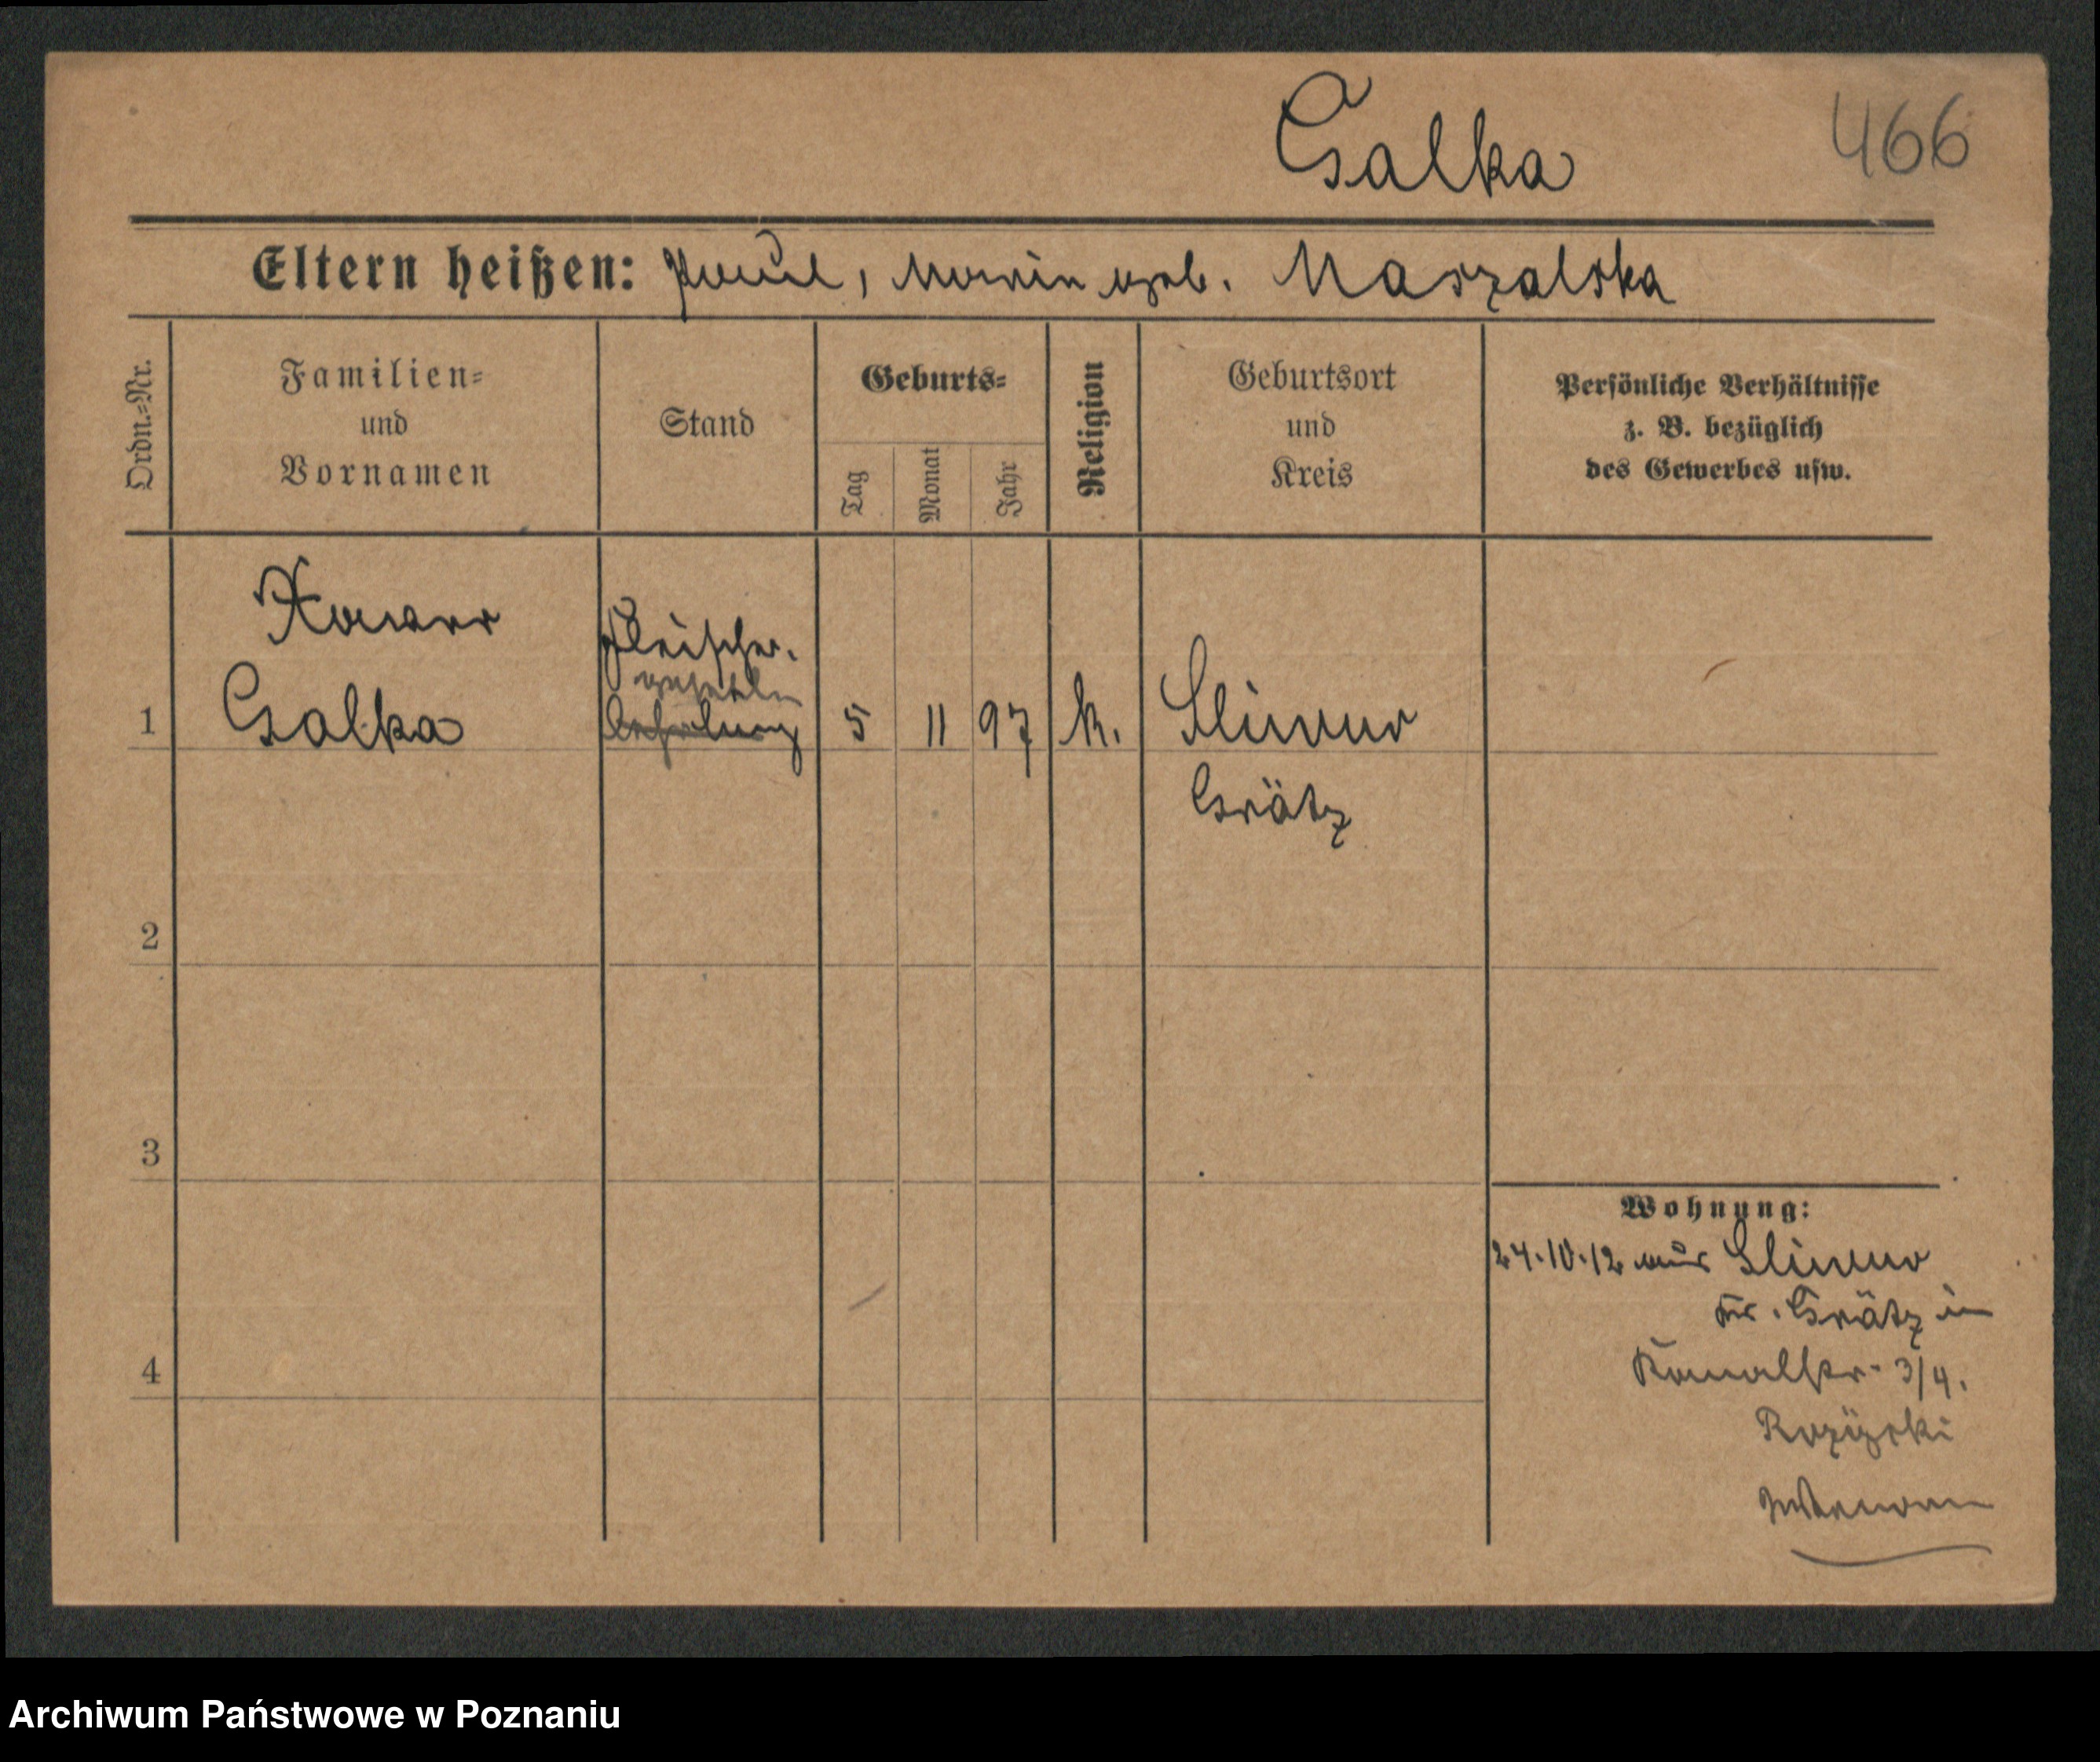 Galka
466
Eltern heißen: Paul, Maria geb. Maszalska
Ordn.=Nr.
Familien=
und
Vornamen
Stand
Geburts=
Tag
Monat
Jahr
Religion
Geburtsort
und
Kreis
Persönliche Verhältnisse
z. B. bezüglich
des Gewerbes usw.
1
Xaver
Galka
Fleischer-
geselle
Lehrling
5
11
97
k.
Sliwno
Grätz
2
3
4
Wohnung:
24.10.12 aus Sliwno
Kr. Grätz in
Kanalstr. 3/4.
Archiwum Państwowe w Poznaniu